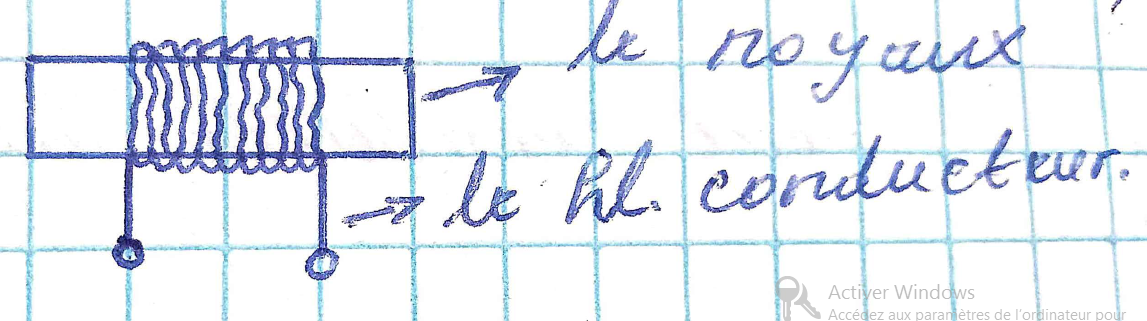 le noyaux
le fil conducteur.
Activer Windows
Accédez aux paramètres de l'ordinateur pour